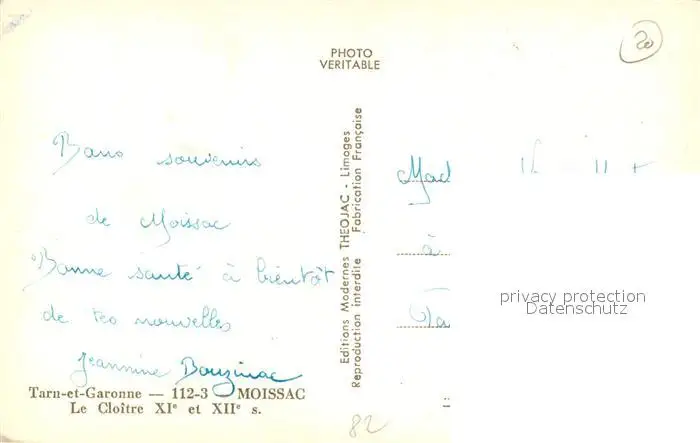 PHOTO
VERITABLE
20
Bons souvenirs
de Moissac
Bonne santé à bientôt
de tes nouvelles
Jeannine Bouzinac
Tarn-et-Garonne — 112-3 MOISSAC
Le Cloître XIe et XIIe s.
Editions Modernes THEOJAC - Limoges
Reproduction interdite Fabrication Française
Mad
à
privacy protection
Datenschutz
82